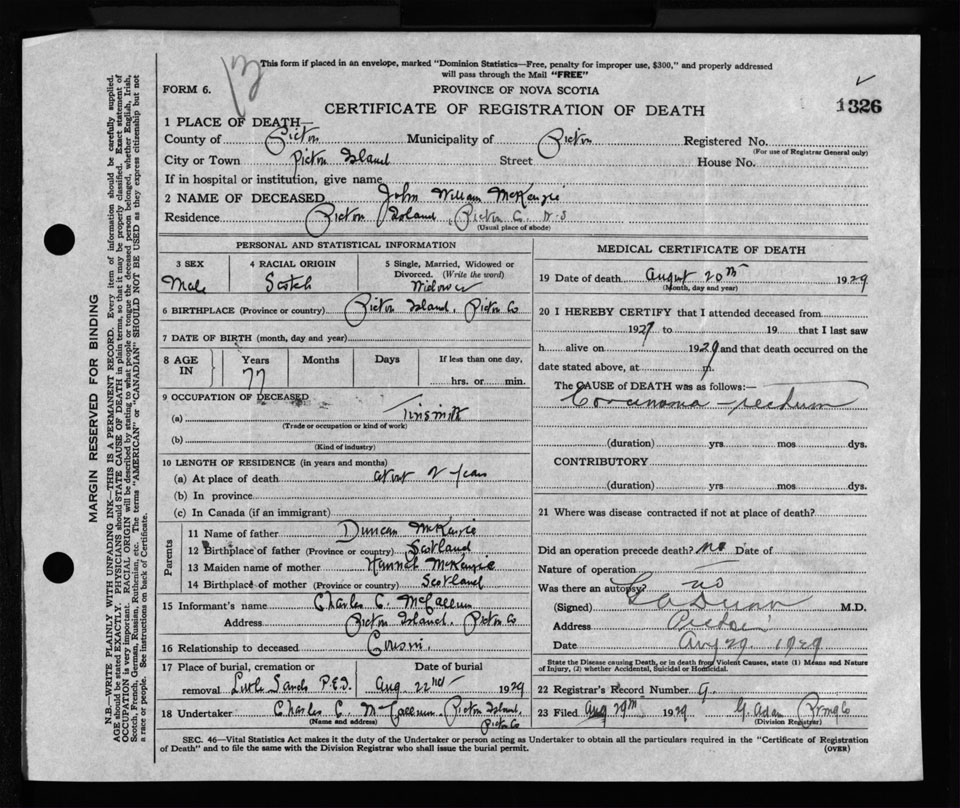 This form if placed in an envelope, marked "Dominion Statistics—Free, penalty for improper use, $300," and properly addressed
will pass through the Mail "FREE"
FORM 6.
PROVINCE OF NOVA SCOTIA
CERTIFICATE OF REGISTRATION OF DEATH
1326
1 PLACE OF DEATH—
County of Pictou Municipality of Pictou Registered No.
(For use of Registrar General only)
City or Town Pictou Island Street House No.
If in hospital or institution, give name
2 NAME OF DECEASED John William McKenzie
Residence Pictou Island, Pictou Co. N.S
(Usual place of abode)
PERSONAL AND STATISTICAL INFORMATION
3 SEX
Male
4 RACIAL ORIGIN
Scotch
5 Single, Married, Widowed or
Divorced. (Write the word)
Widower
6 BIRTHPLACE (Province or country) Pictou Island, Pictou Co
7 DATE OF BIRTH (month, day and year)
8 AGE IN
Years
77
Months
Days
If less than one day,
hrs. or min.
9 OCCUPATION OF DECEASED
(a) Tinsmith
(Trade or occupation or kind of work)
(b)
(Kind of industry)
10 LENGTH OF RESIDENCE (in years and months)
(a) At place of death about 2 years
(b) In province
(c) In Canada (if an immigrant)
Parents
11 Name of father Duncan McKenzie
12 Birthplace of father (Province or country) Scotland
13 Maiden name of mother Hannah McKenzie
14 Birthplace of mother (Province or country) Scotland
15 Informant's name Charles C. McCallum
Address Pictou Island, Pictou Co
16 Relationship to deceased Cousin
17 Place of burial, cremation or
removal Little Sands P.E.I.
Date of burial
Aug. 22nd 1929
18 Undertaker Charles C. McCallum, Pictou Island,
Pictou Co
(Name and address)
MEDICAL CERTIFICATE OF DEATH
19 Date of death August 20th 1929
(Month, day and year)
20 I HEREBY CERTIFY that I attended deceased from
1929 to 19 that I last saw
h alive on 1929 and that death occurred on the
date stated above, at m.
The CAUSE of DEATH was as follows:—
Carcinoma – rectum
(duration) yrs. mos. dys.
CONTRIBUTORY
(duration) yrs. mos. dys.
21 Where was disease contracted if not at place of death?
Did an operation precede death? no Date of
Nature of operation
Was there an autopsy? no
(Signed) Dunn M.D.
Address Pictou
Date Aug 29 1929
State the Disease causing Death, or in death from Violent Causes, state (1) Means and Nature
of Injury, (2) whether Accidental, Suicidal or Homicidal.
22 Registrar's Record Number 9.
23 Filed Aug 29th 1929 G. Adam
(Division Registrar)
SEC. 46—Vital Statistics Act makes it the duty of the Undertaker or person acting as Undertaker to obtain all the particulars required in the "Certificate of Registration
of Death" and to file the same with the Division Registrar who shall issue the burial permit.
(OVER)
MARGIN RESERVED FOR BINDING
N.B.—WRITE PLAINLY WITH UNFADING INK—THIS IS A PERMANENT RECORD. Every item of information should be carefully supplied.
AGE should be stated EXACTLY. PHYSICIANS should STATE CAUSE OF DEATH in plain terms, so that it may be properly classified. Exact statement of
OCCUPATION is very important. RACIAL ORIGIN will be described by stating to what people or tongue the deceased person belonged, whether English, Irish,
Scotch, French, German, Russian, Ruthenian, etc. The terms "AMERICAN" or "CANADIAN" SHOULD NOT BE USED as they express citizenship but not
a race or people. See instructions on back of Certificate.